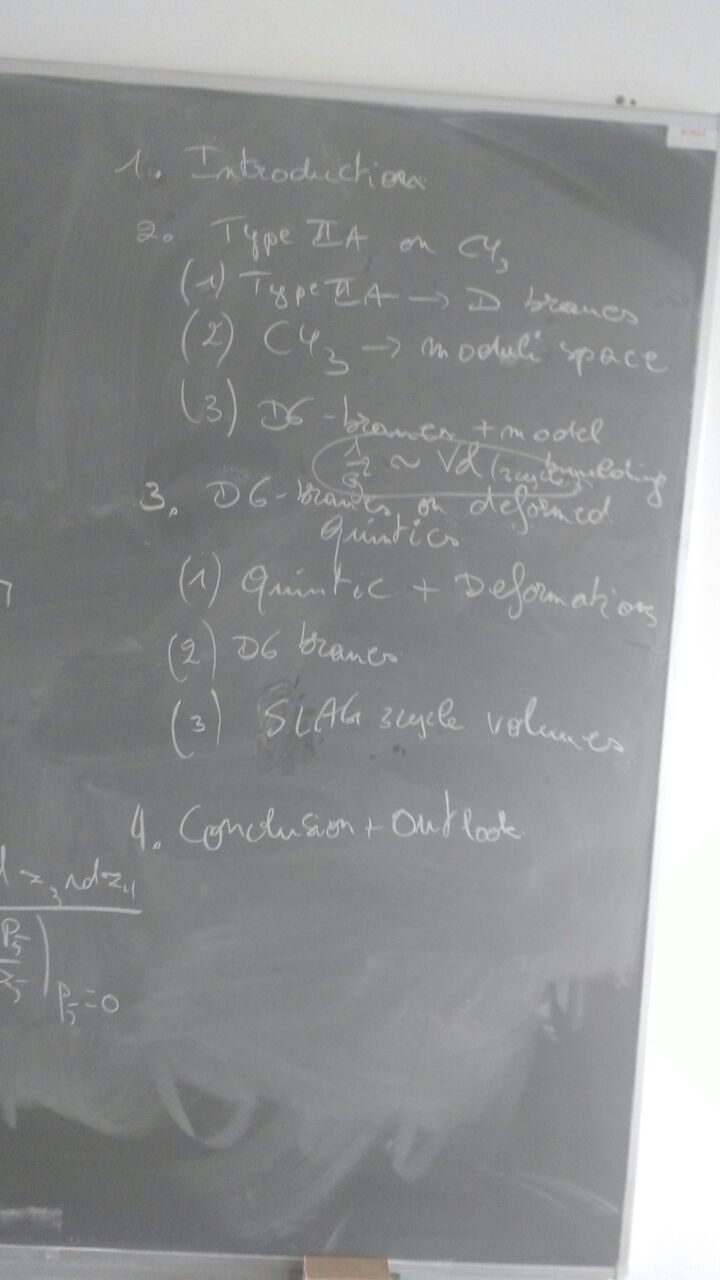 1. Introduction
2. Type IIA on CY₃
(1) Type IIA → D branes
(2) CY₃ → moduli space
(3) D6-branes + model
building
1/g² ~ Vol (3cycle)
3. D6-branes on deformed
Quintics
(1) Quintic + Deformations
(2) D6 branes
(3) SLAG 3cycle volumes
4. Conclusion + Outlook
z₃∧dz₄
P₅
z₅
P₅=0